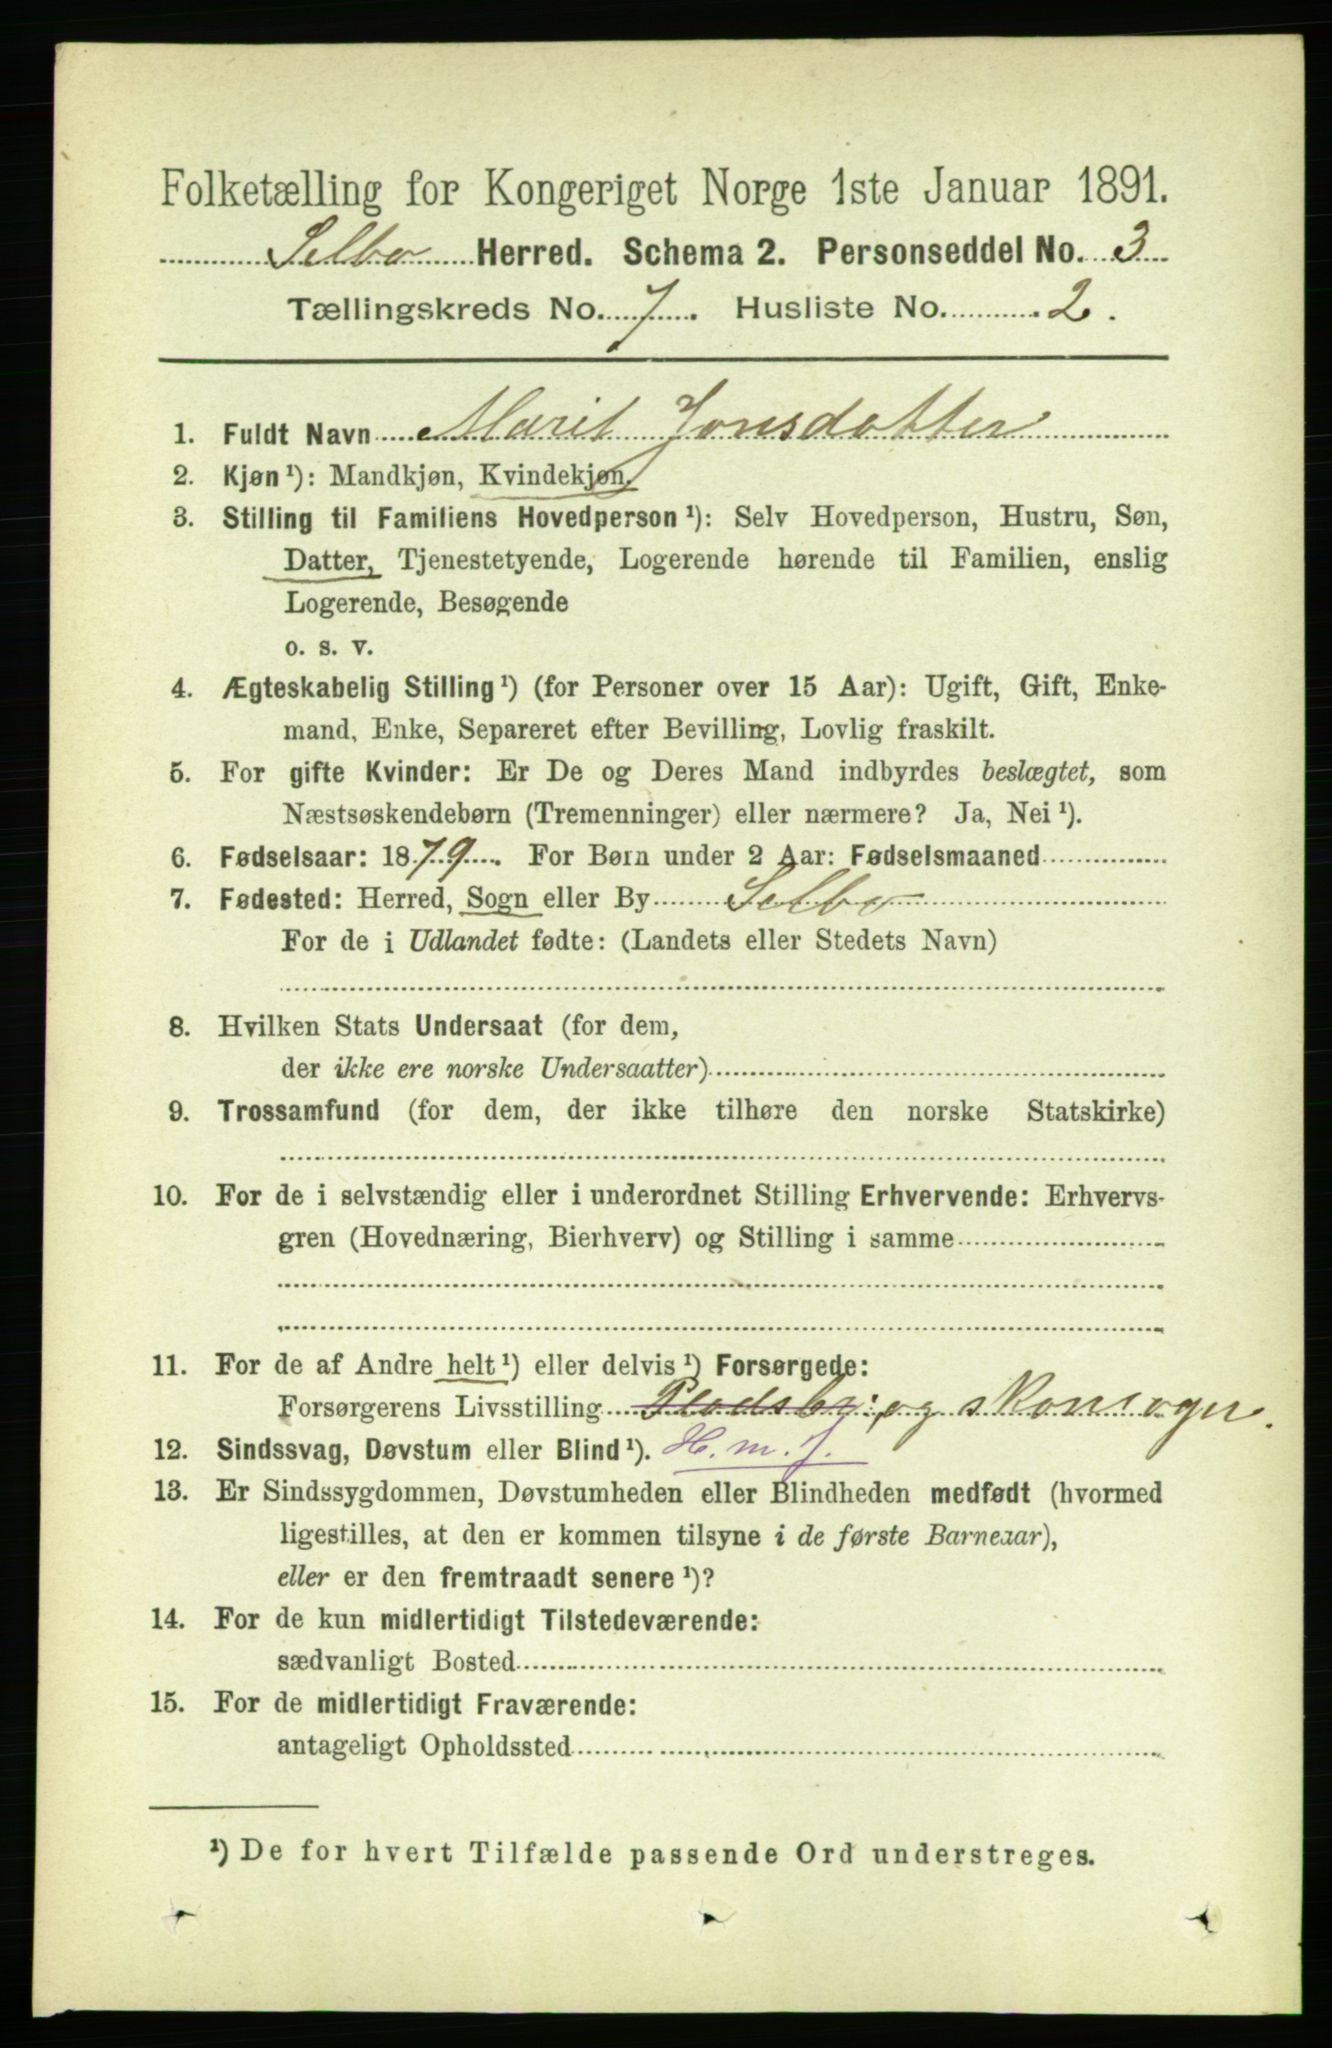 Folketælling for Kongeriget Norge 1ste Januar 1891.
Selbo Herred. Schema 2. Personseddel No. 3
Tællingskreds No. 7. Husliste No. 2.
1. Fuldt Navn Marit Jonsdatter
2. Kjøn¹): Mandkjøn, Kvindekjøn.
3. Stilling til Familiens Hovedperson¹): Selv Hovedperson, Hustru, Søn,
Datter, Tjenestetyende, Logerende hørende til Familien, enslig
Logerende, Besøgende
o. s. v.
4. Ægteskabelig Stilling¹) (for Personer over 15 Aar): Ugift, Gift, Enke-
mand, Enke, Separeret efter Bevilling, Lovlig fraskilt.
5. For gifte Kvinder: Er De og Deres Mand indbyrdes beslægtet, som
Næstsøskendebørn (Tremenninger) eller nærmere? Ja, Nei¹).
6. Fødselsaar: 1879. For Børn under 2 Aar: Fødselsmaaned
7. Fødested: Herred, Sogn eller By Selbo
For de i Udlandet fødte: (Landets eller Stedets Navn)
8. Hvilken Stats Undersaat (for dem,
der ikke ere norske Undersaatter)
9. Trossamfund (for dem, der ikke tilhøre den norske Statskirke)
10. For de i selvstændig eller i underordnet Stilling Erhvervende: Erhvervs-
gren (Hovednæring, Bierhverv) og Stilling i samme
11. For de af Andre helt¹) eller delvis¹) Forsørgede:
Forsørgerens Livsstilling Pladsbr: og skomager.
12. Sindssvag, Døvstum eller Blind¹). H. m. J.
13. Er Sindssygdommen, Døvstumheden eller Blindheden medfødt (hvormed
ligestilles, at den er kommen tilsyne i de første Barneaar),
eller er den fremtraadt senere¹)?
14. For de kun midlertidigt Tilstedeværende:
sædvanligt Bosted
15. For de midlertidigt Fraværende:
antageligt Opholdssted
¹) De for hvert Tilfælde passende Ord understreges.